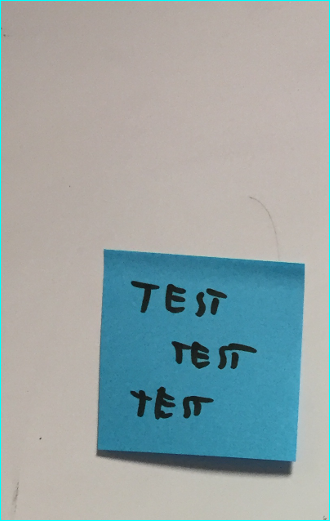 TEST
TEST
tEST